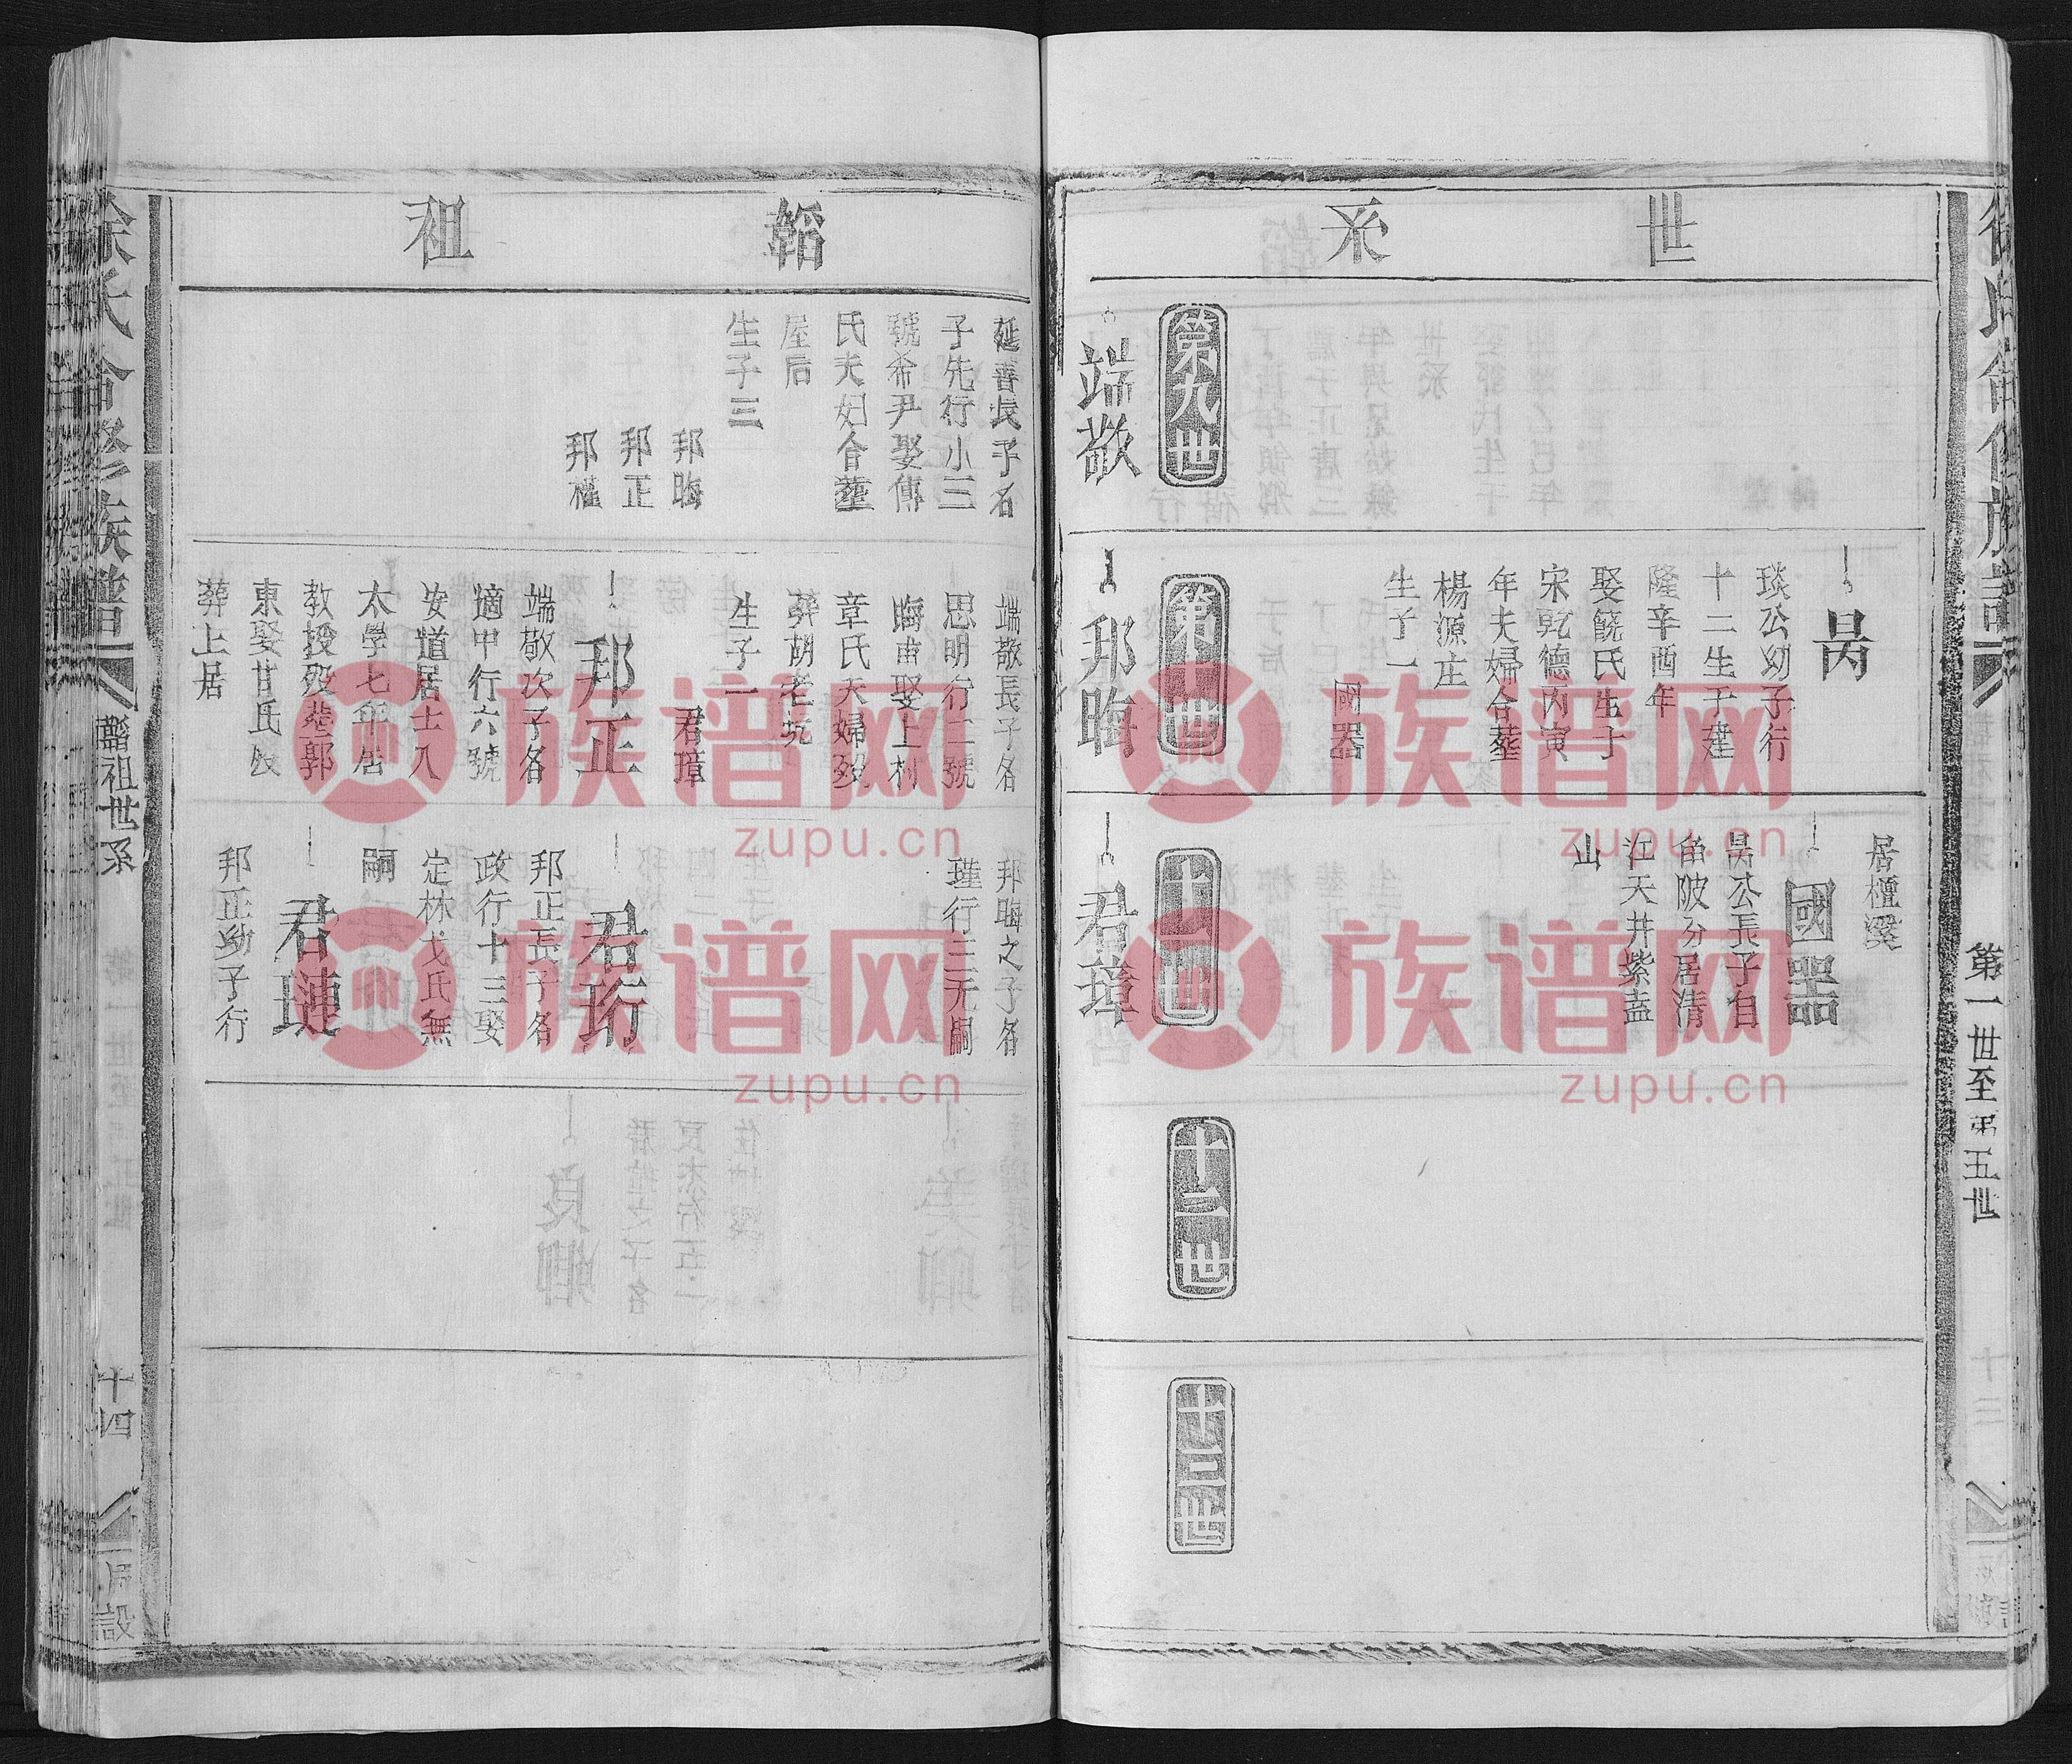 世系
第一世至第五世
昺
琰公幼子行
十二生于建
隆辛酉年
娶饒氏生于
宋乾德丙寅
年夫婦合塟
楊源庄
生子一
國器
居檀溪
國器
昺公長子自
魚陂分居清
江天井紫盖
山
第九世
第十世
十一世
十二世
十三世
端敬
邦晦
君璋
韜祖
延善長子名
子先行小三
號希尹娶傅
氏夫妇合塟
屋后
生子三
邦晦
邦正
邦權
端敬長子名
思明行二號
晦甫娶上村
章氏夫婦殁
葬胡老坑
生子一
君璋
邦正
端敬次子名
適中行六號
安道居士入
太學七年居
教授殁塟郭
東娶甘氏殁
葬上居
邦晦之子名
瑾行三无嗣
君珩
邦正長子名
政行十三娶
定林戈氏無
嗣
君璉
邦正幼子行
徐氏合修族譜
韜祖世系
十四
族谱网
zupu.cn
族谱网
zupu.cn
族谱网
zupu.cn
族谱网
zupu.cn